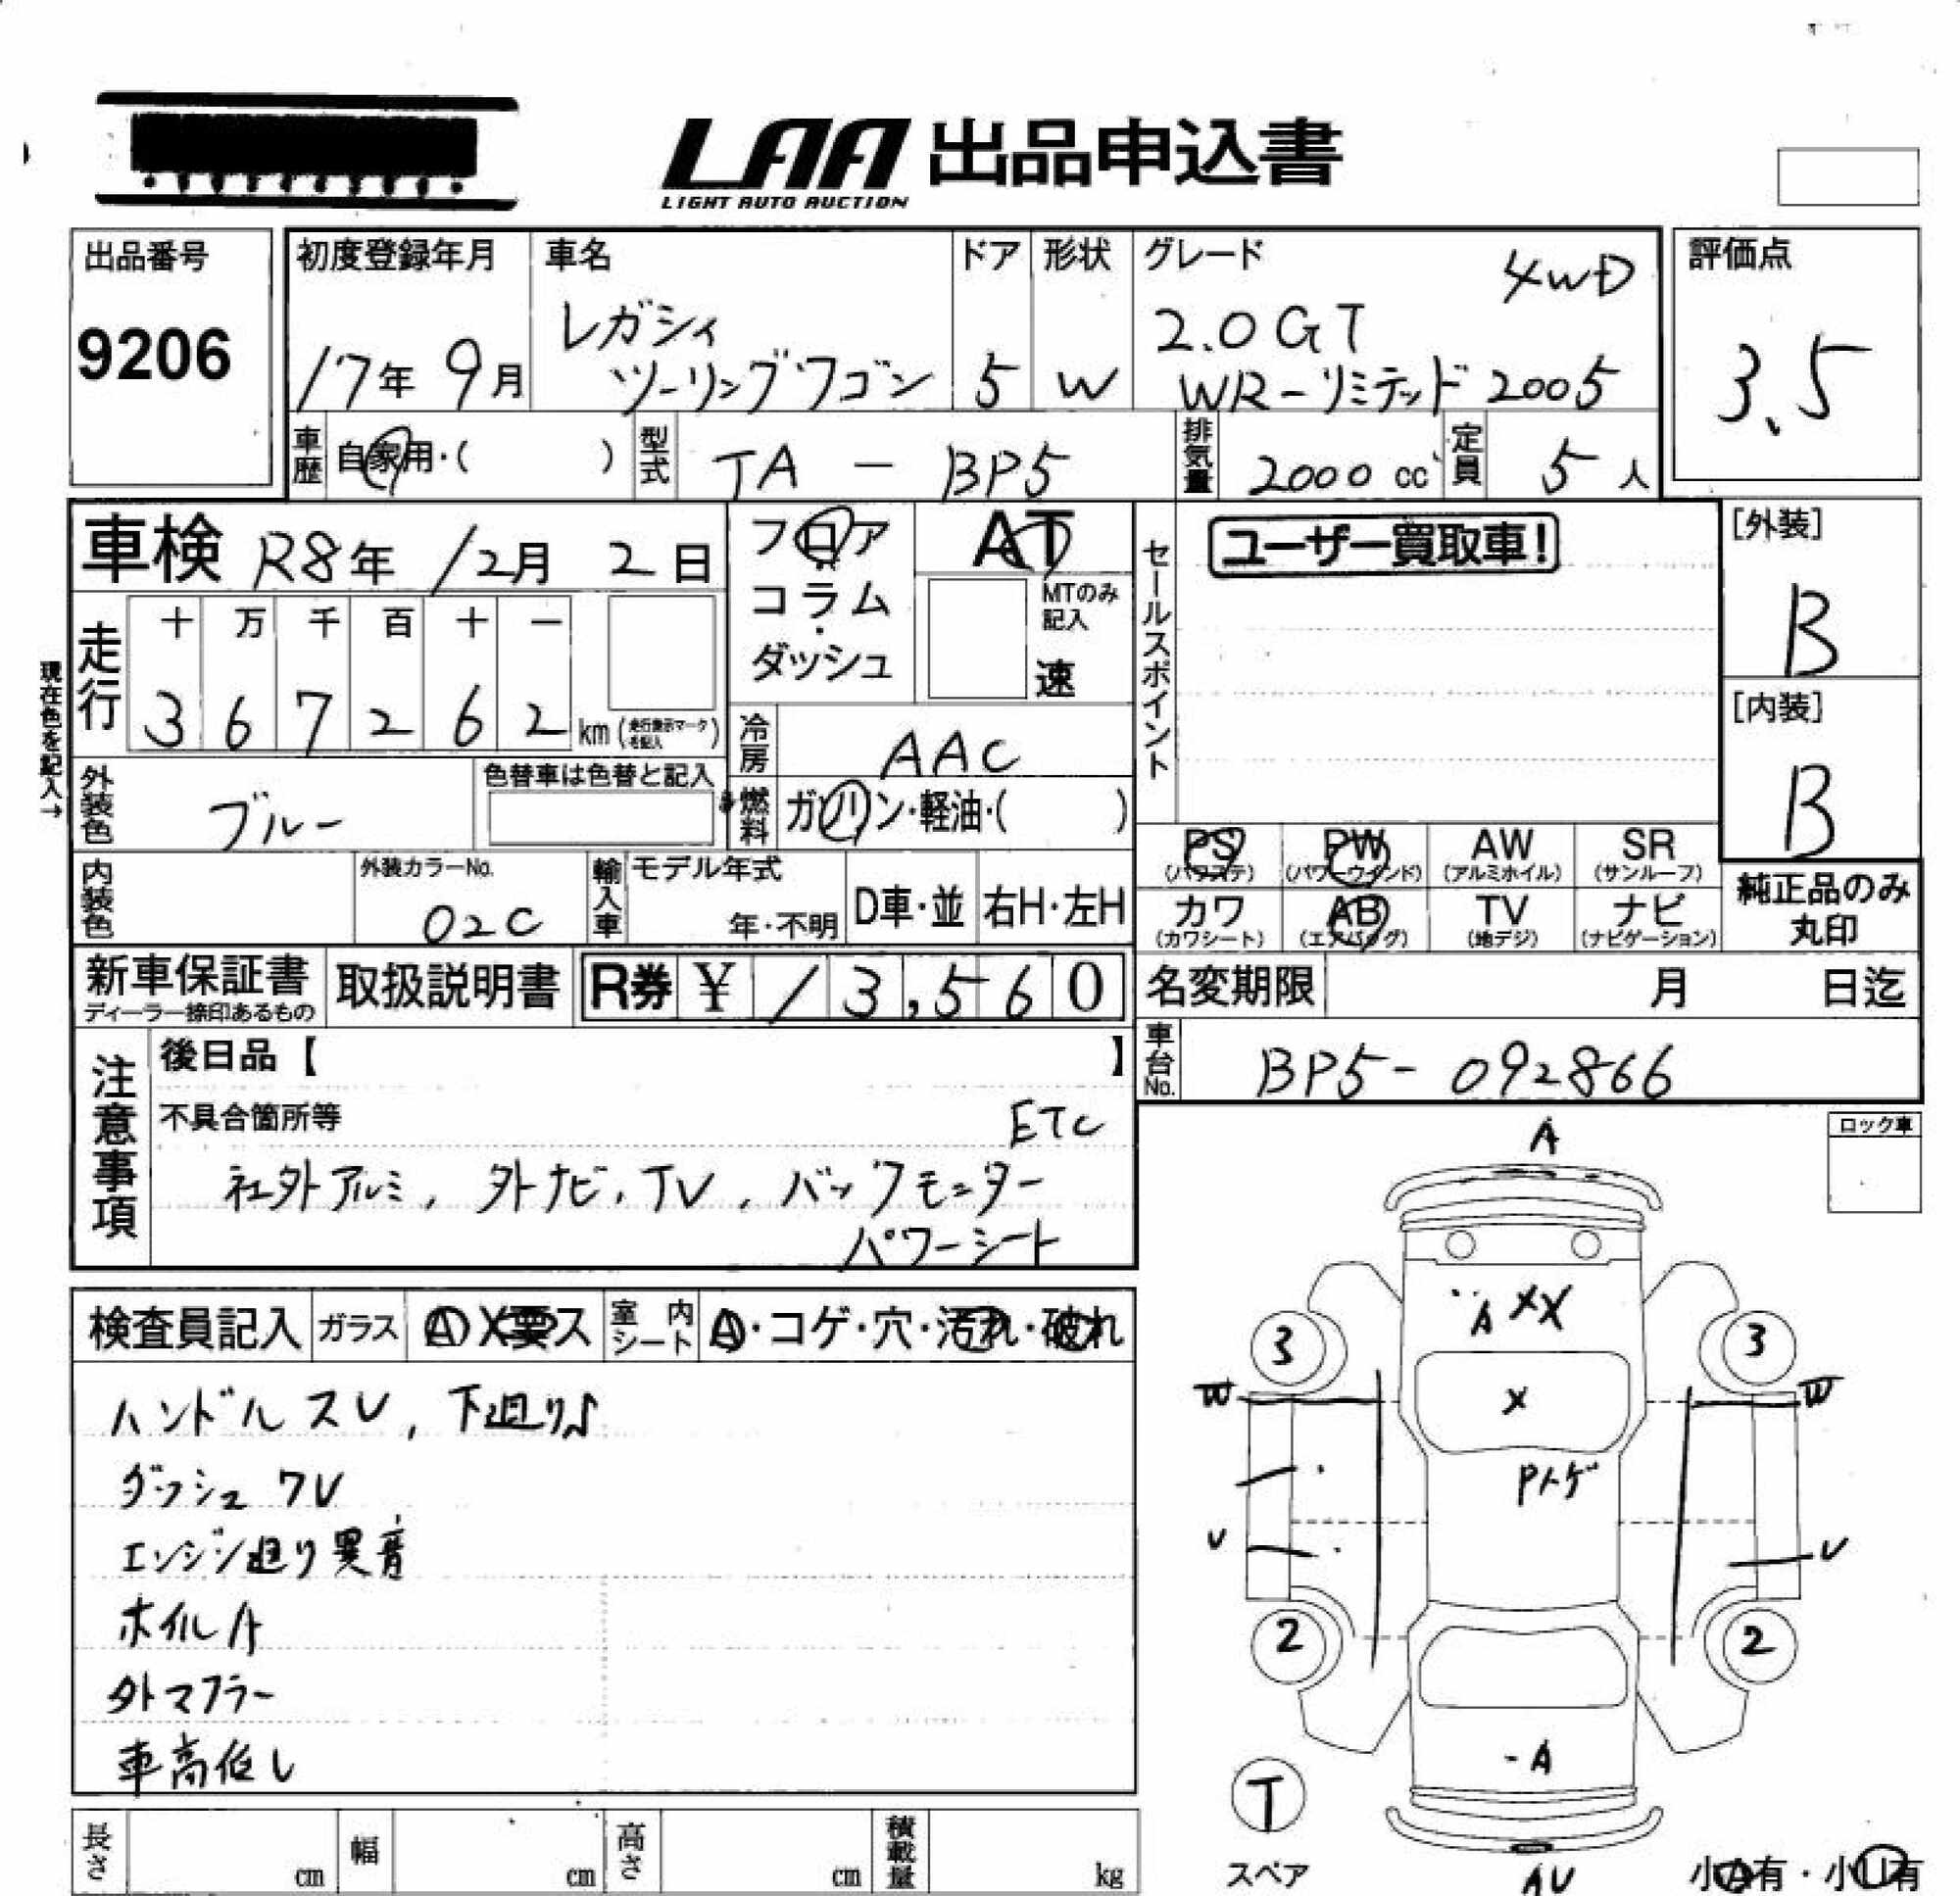 LAA 出品申込書
LIGHT AUTO AUCTION
出品番号
9206
初度登録年月
17年 9月
車名
レガシィ
ツーリングワゴン
ドア
5
形状
W
グレード
4WD
2.0GT
WR-リミテッド2005
評価点
3.5
車歴
自家用・( )
型式
TA - BP5
排気量
2000 cc
定員
5 人
車検 R8年 12月 2日
フロア
コラム
・
ダッシュ
AT
MTのみ
記入
速
セールスポイント
ユーザー買取車!
[外装]
B
[内装]
B
現在色を記入→
走行
十 万 千 百 十 一
3 6 7 2 6 2 km (走行表示マークを記入)
冷房
AAC
外装色
ブルー
色替車は色替と記入
燃料
ガソリン・軽油・( )
PS
(パワステ)
PW
(パワーウインド)
AW
(アルミホイル)
SR
(サンルーフ)
カワ
(カワシート)
AB
(エアバッグ)
TV
(地デジ)
ナビ
(ナビゲーション)
純正品のみ
丸印
内装色
外装カラーNo.
02C
輸入車
モデル年式
年・不明
D車・並
右H・左H
新車保証書
ディーラー捺印あるもの
取扱説明書
R券 ¥ 13,560
名変期限 月 日迄
車台No.
BP5- 092866
注意事項
後日品【 】
不具合箇所等
ETC
社外アルミ, 外ナビ, TV, バックモニター
パワーシート
ロック車
検査員記入
ガラス
A X要ス
室内シート
A・コゲ・穴・汚れ・破れ
ハンドルスレ, 下廻りS
ダッシュワレ
エンジン廻り異音
ホイルA
外マフラー
車高低し
A
A XX
3
3
W
W
X
Pトゲ
U
U
2
2
-A
T
スペア
AU
小A有・小U有
長さ cm
幅 cm
高さ cm
積載量 kg